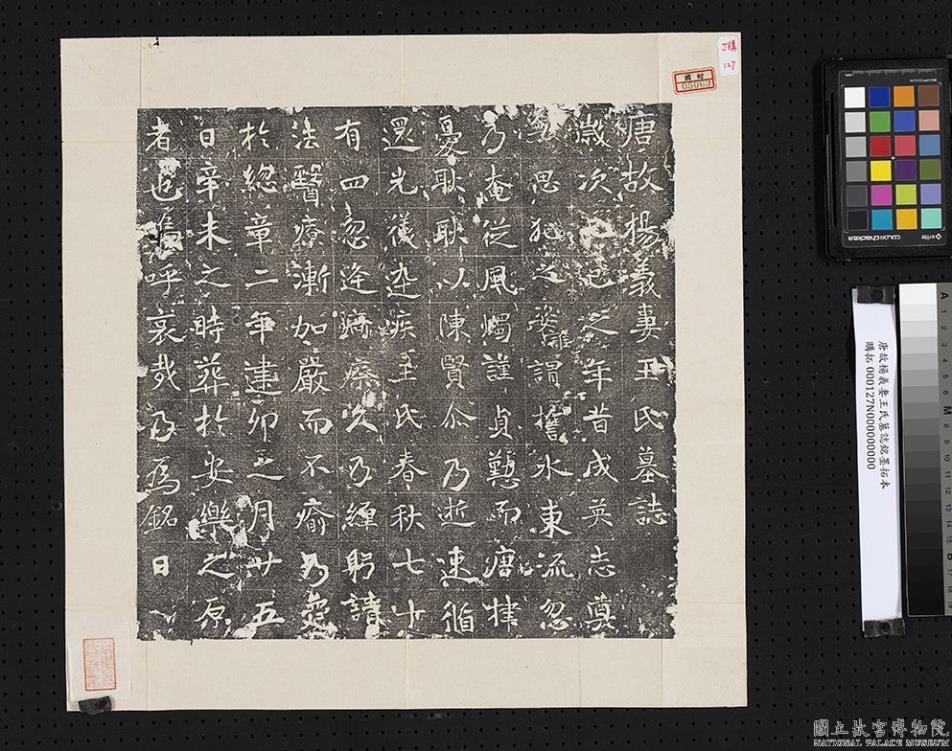 唐故楊義妻王氏墓誌
歲次己巳之年昔成英志奠
思猶之蹤誰謂舊水東流忽
乃奄從風燭謹貞懃而
憂耿耿以陳賢尒乃逝速循
還光後染疾王氏春秋七十
有四忽逢痾瘵久乃纏躬諸
法醫療漸加嚴而不瘉乃薨
於總章二年建卯之月廿五
日辛未之時葬於安樂之原
者也嗚呼哀哉乃爲銘曰
J購
127
唐故楊義妻王氏墓誌銘墨拓本
購拓 000127N000000000
國立故宮博物院
NATIONAL PALACE MUSEUM